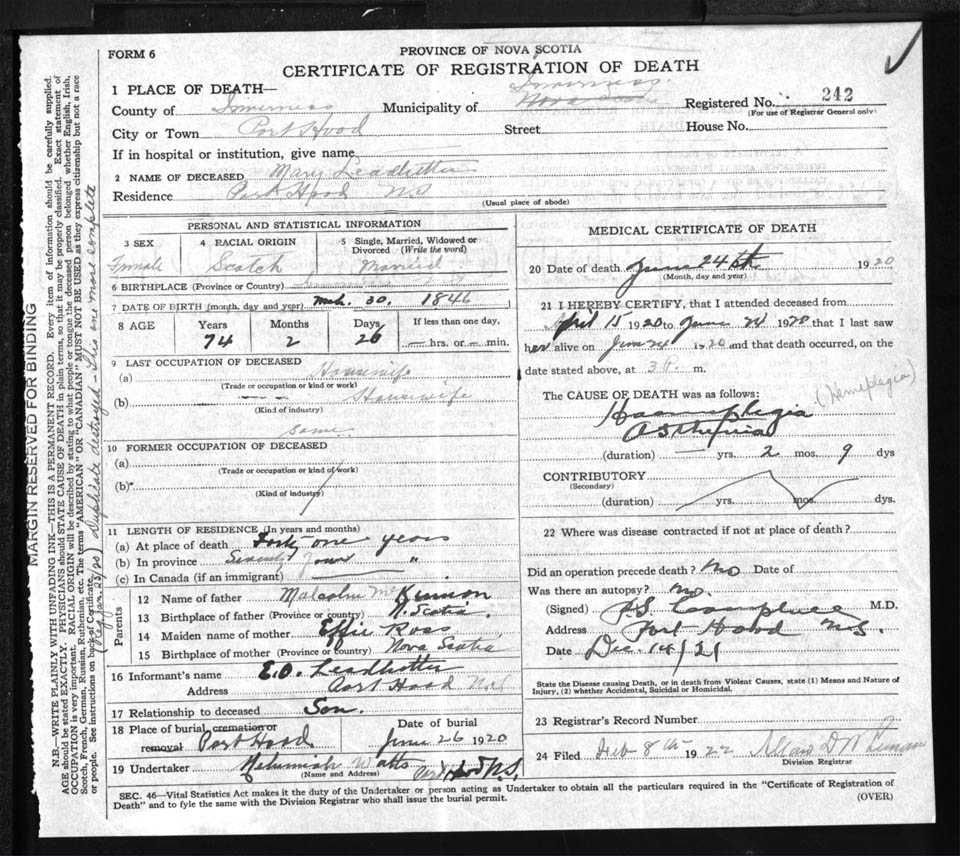 FORM 6
PROVINCE OF NOVA SCOTIA
CERTIFICATE OF REGISTRATION OF DEATH
1 PLACE OF DEATH—
Inverness
County of Inverness Municipality of Nova Scotia Registered No. 242
(For use of Registrar General only)
City or Town Port Hood Street House No.
If in hospital or institution, give name
2 NAME OF DECEASED Mary Leadbetter
Residence Port Hood N.S
(Usual place of abode)
PERSONAL AND STATISTICAL INFORMATION
3 SEX 4 RACIAL ORIGIN 5 Single, Married, Widowed or Divorced (Write the word)
Female Scotch Married
6 BIRTHPLACE (Province or Country)
7 DATE OF BIRTH (month, day and year) Mch. 30. 1846
8 AGE Years Months Days If less than one day,
74 2 26 — hrs. or — min.
9 LAST OCCUPATION OF DECEASED
(a) Housewife
(Trade or occupation or kind or work)
(b) Housewife
(Kind of industry)
same
10 FORMER OCCUPATION OF DECEASED
(a)
(Trade or occupation or kind of work)
(b)
(Kind of industry)
11 LENGTH OF RESIDENCE (In years and months)
(a) At place of death Forty one years
(b) In province Seventy four "
(c) In Canada (if an immigrant)
Parents
12 Name of father Malcolm McKinnon
13 Birthplace of father (Province or country) N. Scotia
14 Maiden name of mother Effie Ross
15 Birthplace of mother (Province or country) Nova Scotia
16 Informant's name E.D. Leadbetter
Address Port Hood N.S
17 Relationship to deceased Son.
18 Place of burial, cremation or removal Port Hood Date of burial June 26 1920
19 Undertaker Nehemiah Watts Port Hood N.S.
(Name and Address)
MEDICAL CERTIFICATE OF DEATH
20 Date of death June 24th 1920
(Month, day and year)
21 I HEREBY CERTIFY, that I attended deceased from
April 15 1920 to June 24 1920 that I last saw
her alive on June 24 1920 and that death occurred, on the
date stated above, at m.
The CAUSE OF DEATH was as follows: (Hemeplegia)
Haemeplegia
(duration) — yrs. 2 mos. 9 dys
CONTRIBUTORY
(Secondary)
(duration) yrs. mos. dys.
22 Where was disease contracted if not at place of death?
Did an operation precede death? No Date of
Was there an autopsy? no.
(Signed) J.S. Campbell M.D.
Address Port Hood N.S.
Date Dec. 14/21
State the Disease causing Death, or in death from Violent Causes, state (1) Means and Nature of
Injury, (2) whether Accidental, Suicidal or Homicidal.
23 Registrar's Record Number
24 Filed Feb 8th 1922
Division Registrar
SEC. 46—Vital Statistics Act makes it the duty of the Undertaker or person acting as Undertaker to obtain all the particulars required in the "Certificate of Registration of
Death" and to fyle the same with the Division Registrar who shall issue the burial permit. (OVER)
MARGIN RESERVED FOR BINDING
N.B.—WRITE PLAINLY WITH UNFADING INK—THIS IS A PERMANENT RECORD. Every item of information should be carefully supplied.
AGE should be stated EXACTLY. PHYSICIANS should STATE CAUSE OF DEATH in plain terms, so that it may be properly classified. Exact statement of
OCCUPATION is very important. RACIAL ORIGIN will be described by stating to what people or tongue the deceased person belonged, whether English, Irish,
Scotch, French, German, Russian, Ruthenian, etc. The terms "AMERICAN" OR "CANADIAN" MUST NOT BE USED as they express citizenship but not a race
or people. See instructions on back of Certificate.
(Reg. Jan. 23/20) Duplicate destroyed - This one more complete